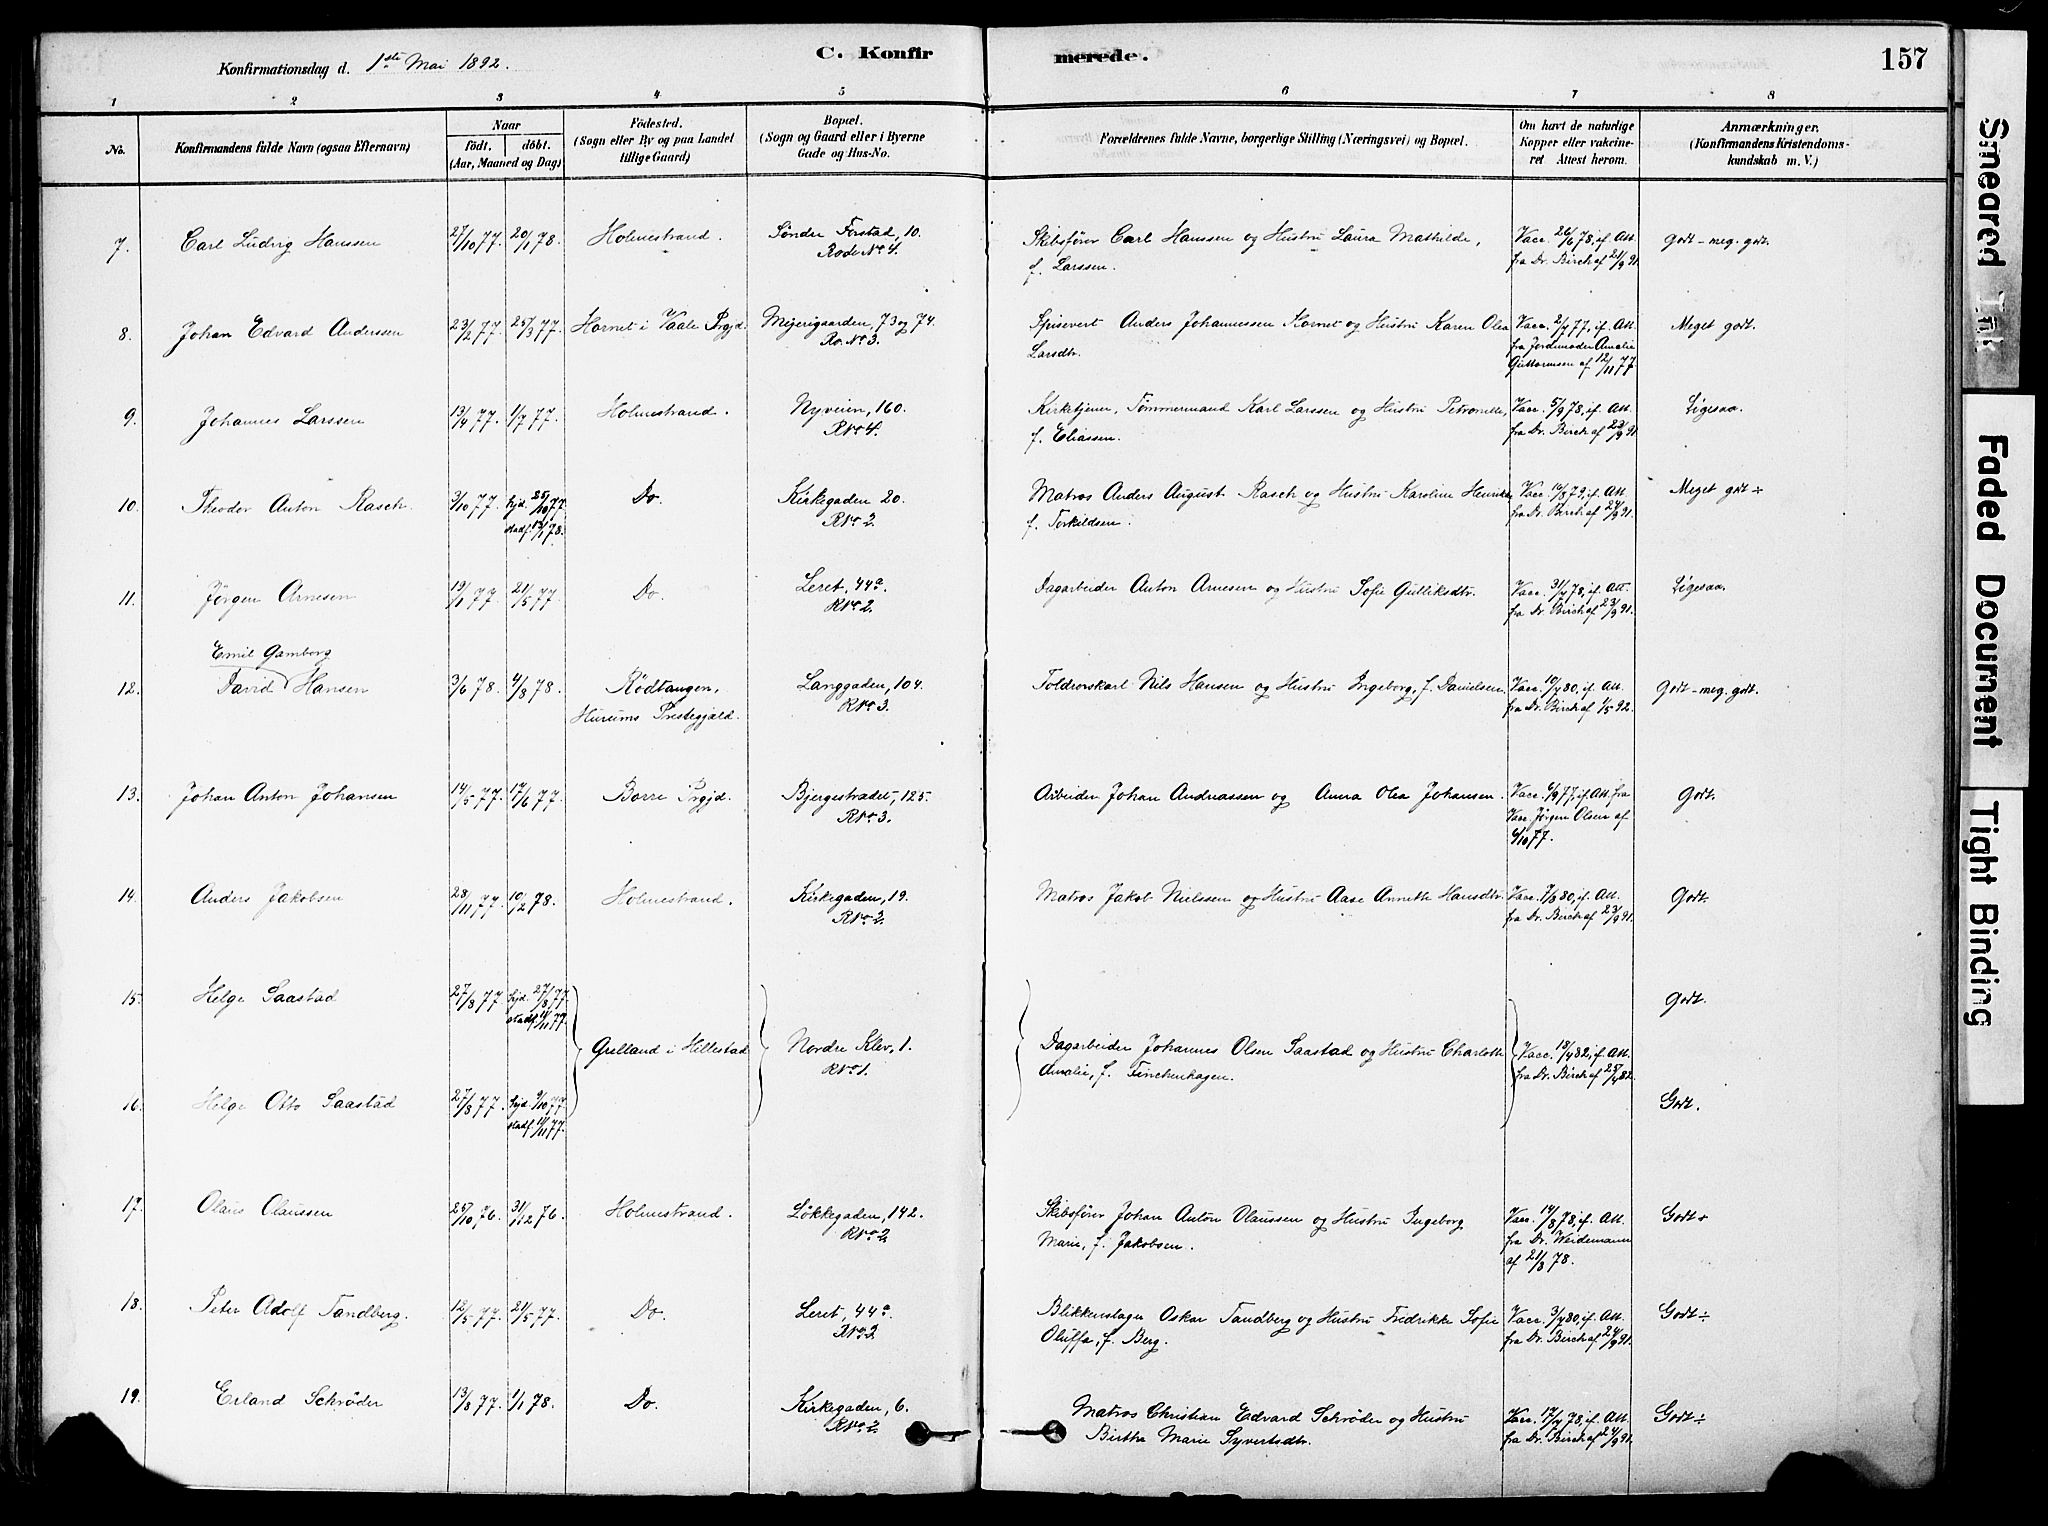 Konfirmationsdag d. 1ste Mai 1892.
C. Konfir
merede.
157
1 2 3 4 5 6 7 8
No.
Konfirmandens fulde Navn (ogsaa Efternavn)
Naar
födt. döbt.
(Aar, Maaned og Dag)
Födested.
(Sogn eller By og paa Landet
tillige Gaard)
Bopæl.
(Sogn og Gaard eller i Byerne
Gade og Hus-No.
Forældrenes fulde Navne, borgerlige Stilling (Næringsvei) og Bopæl.
Om havt de naturlige
Kopper eller vakcine-
ret Attest herom.
Anmærkninger.
(Konfirmandens Kristendoms-
kundskab m. V.)
7. Carl Ludvig Hanssen 27/10 77. 20/1 78. Holmestrand. Söndre Forstad, 10.
Rode No 4.
Skibsförer Carl Hanssen og Hustru Laura Mathilde,
f. Larssen.
Vacc. 26/6 78, if. Att.
fra Dr. Birch af 21/9 91.
Godt - meg. godt.
8. Johan Edvard Anderssen 23/2 77. 25/3 77. Hornet i Vaale Prgjd. Meijerigaarden, 73 og 74.
Ro. No 3.
Spisevert Anders Johannessen Hornet og Hustru Karen Olea
Larsdtr.
Vacc. 2/7 77, if. Att.
fra Jordemoder Amalie
Guttormsen af 12/11 77
Meget godt.
9. Johannes Larssen 13/4 77. 1/7 77. Holmestrand. Nyveien, 160.
R No 4.
Kirketjener, Tömmermand Karl Larssen og Hustru Petronelle,
f. Eliassen.
Vacc. 5/9 78, if. Att.
fra Dr. Birch af 23/9 91.
Ligesaa.
10. Theodor Anton Rasch. 3/10 77. hjd. 25/10 77.
stadf. 13/1 78.
Do. Kirkegaden 20.
R No 2.
Matros Anders August Rasch og Hustru Karoline Henrikke
f. Torkildsen.
Vacc. 10/8 79, if. Att.
fra Dr. Birch af 24/9 91.
Meget godt ÷
11. Jörgen Arnesen 19/1 77. 21/5 77. Do. Leret, 44a.
R No 2.
Dagarbeider Anton Arnesen og Hustru Sofie Gulliksdtr.
Vacc. 31/7 78, if. Att.
fra Dr. Birch af 23/9 91.
Ligesaa.
Emil Gamborg
12. David Hansen 3/6 78. 4/8 78. Rödtangen,
Hurums Prestegjæld.
Langgaden, 104.
R No 3.
Toldrorskarl Nils Hansen og Hustru Ingeborg, f. Danielsen.
Vacc. 10/7 80, if. Att.
fra Dr. Birch af 1/5 92.
Godt - meg. godt.
13. Johan Anton Johansen 14/5 77. 17/6 77. Borre Prgjd. Bjergestrædet, 125.
R No 3.
Arbeider Johan Andreassen og Anna Olea Johansen.
Vacc. 6/9 77, if. Att. fra
Vacc. Jörgen Olsen af
6/10 77.
Godt.
14. Anders Jakobsen 28/11 77. 10/2 78. Holmestrand. Kirkegaden, 19.
R No 2.
Matros Jakob Nielssen og Hustru Aase Annette Hansdtr.
Vacc. 7/8 80, if. Att.
fra Dr. Birch af 23/9 91.
Godt.
15. Helge Saastad 27/8 77. hjd. 27/8 77.
stadf. 11/11 77.
Godt.
Grelland i Hillestad Nordre Klev, 1.
R No 1.
Dagarbeider Johannes Olsen Saastad og Hustru Charlotte
Amalie, f. Finckenhagen.
Vacc. 18/4 82, if. Att.
fra Dr. Birch af 25/4 82.
16. Helge Otto Saastad 27/8 77. hjd. 9/10 77.
stadf. 11/11 77.
Godt.
17. Olaus Olaussen 25/10 76. 31/12 76. Holmestrand. Løkkegaden, 142.
R No 2.
Skibsförer Johan Anton Olaussen og Hustru Ingeborg
Marie, f. Jakobsen.
Vacc. 14/8 78, if. Att.
fra Dr. Weidemann
af 21/8 78.
Godt +
18. Peter Adolf Tandberg. 12/5 77. 21/5 77. Do. Leret, 44a.
R No 2.
Blikkenslager Oskar Tandberg og Hustru Fredrikke Sofie
Oluffa, f. Berg.
Vacc. 3/7 80, if. Att.
fra Dr. Birch af 24/9 91.
Godt ÷
19. Erland Schröder 13/8 77. 1/1 78. Do. Kirkegaden, 6.
R No 2.
Matros Christian Edvard Schröder og Hustru
Birthe Marie Syvertsdtr.
Vacc. 17/7 78, if. Att.
fra Dr. Birch af 24/9 91.
Godt ÷
Smeared Ink
Faded Document
Tight Binding